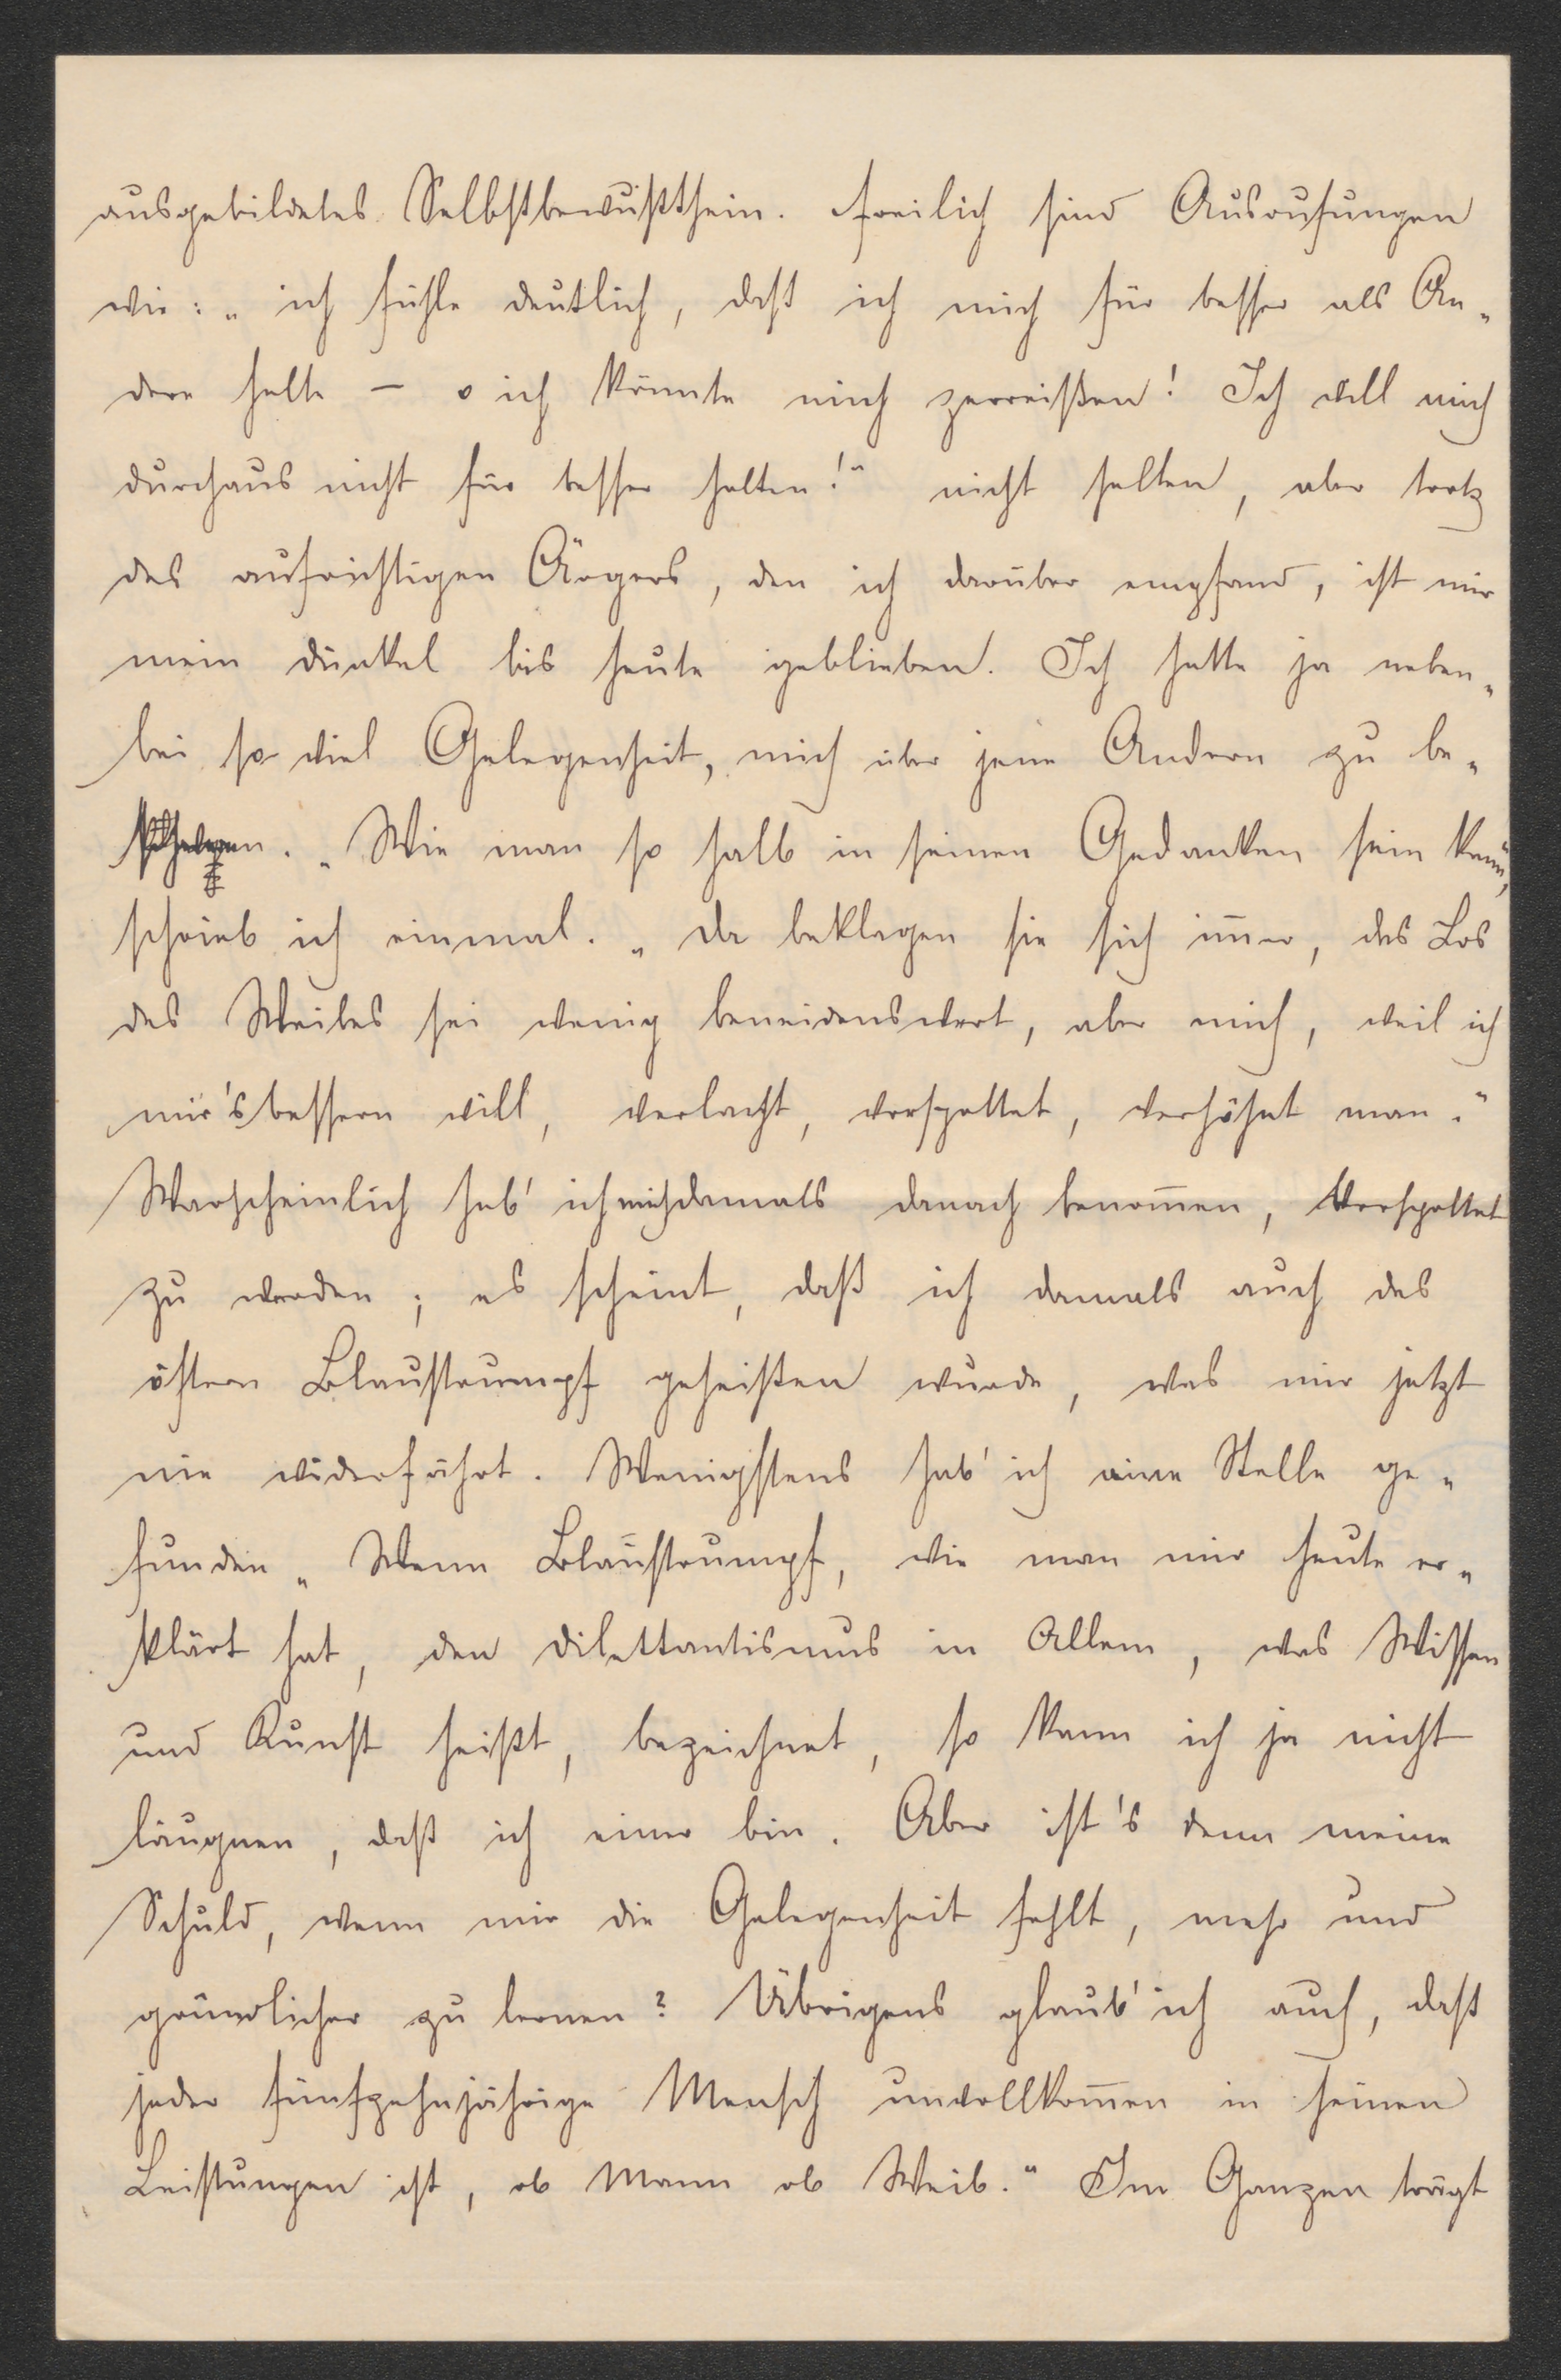 ausgebildetes Selbstbewußtsein. Freilich sind Ausrufungen
wie: „ich fühle deutlich, daß ich mich für besser als An„
dere halte – o ich könnte mich zerreißen! Ich will mich
durchaus nicht für besser halten!“ nicht selten, aber trotz
des aufrichtigen Ärgers, den ich darüber empfand, ist mir
mein Dünkel bis heute geblieben. Ich hatte ja neben„
bei so viel Gelegenheit, mich über jene Andern zu be„
„Wie man so halb in seinen Gedanken sein kann“,
schrieb ich einmal. „Da beklagen sie sich im̅er, das Los
des Weibes sei wenig beneidenswert, aber mich, weil ich
mir's bessern will, verlacht, verspottet, verhöhnt man.“
Warscheinlich hab' ich mich damals danach benom̅en, verspottet
zu werden; es scheint, daß ich damals auch des
öftern Blaustrumpf geheißen wurde, was mir jetzt
nie widerfährt. Wenigstens hab' ich eine Stelle ge„
funden „Wenn Blaustrumpf, wie man mir heute er„
klärt hat, den Dilettantismus in Allem, was Wissen
und Kunst heißt, bezeichnet, so kann ich ja nicht
läugnen, daß ich einer bin. Aber ist's denn meine
Schuld, wenn mir die Gelegenheit fehlt, mehr und
gründlicher zu lernen? Übrigens glaub' ich auch, daß
jeder fünfzehnjährige Mensch unvollkom̅en in seinen
Leistungen ist, ob Mann ob Weib.“ Im Ganzen trägt